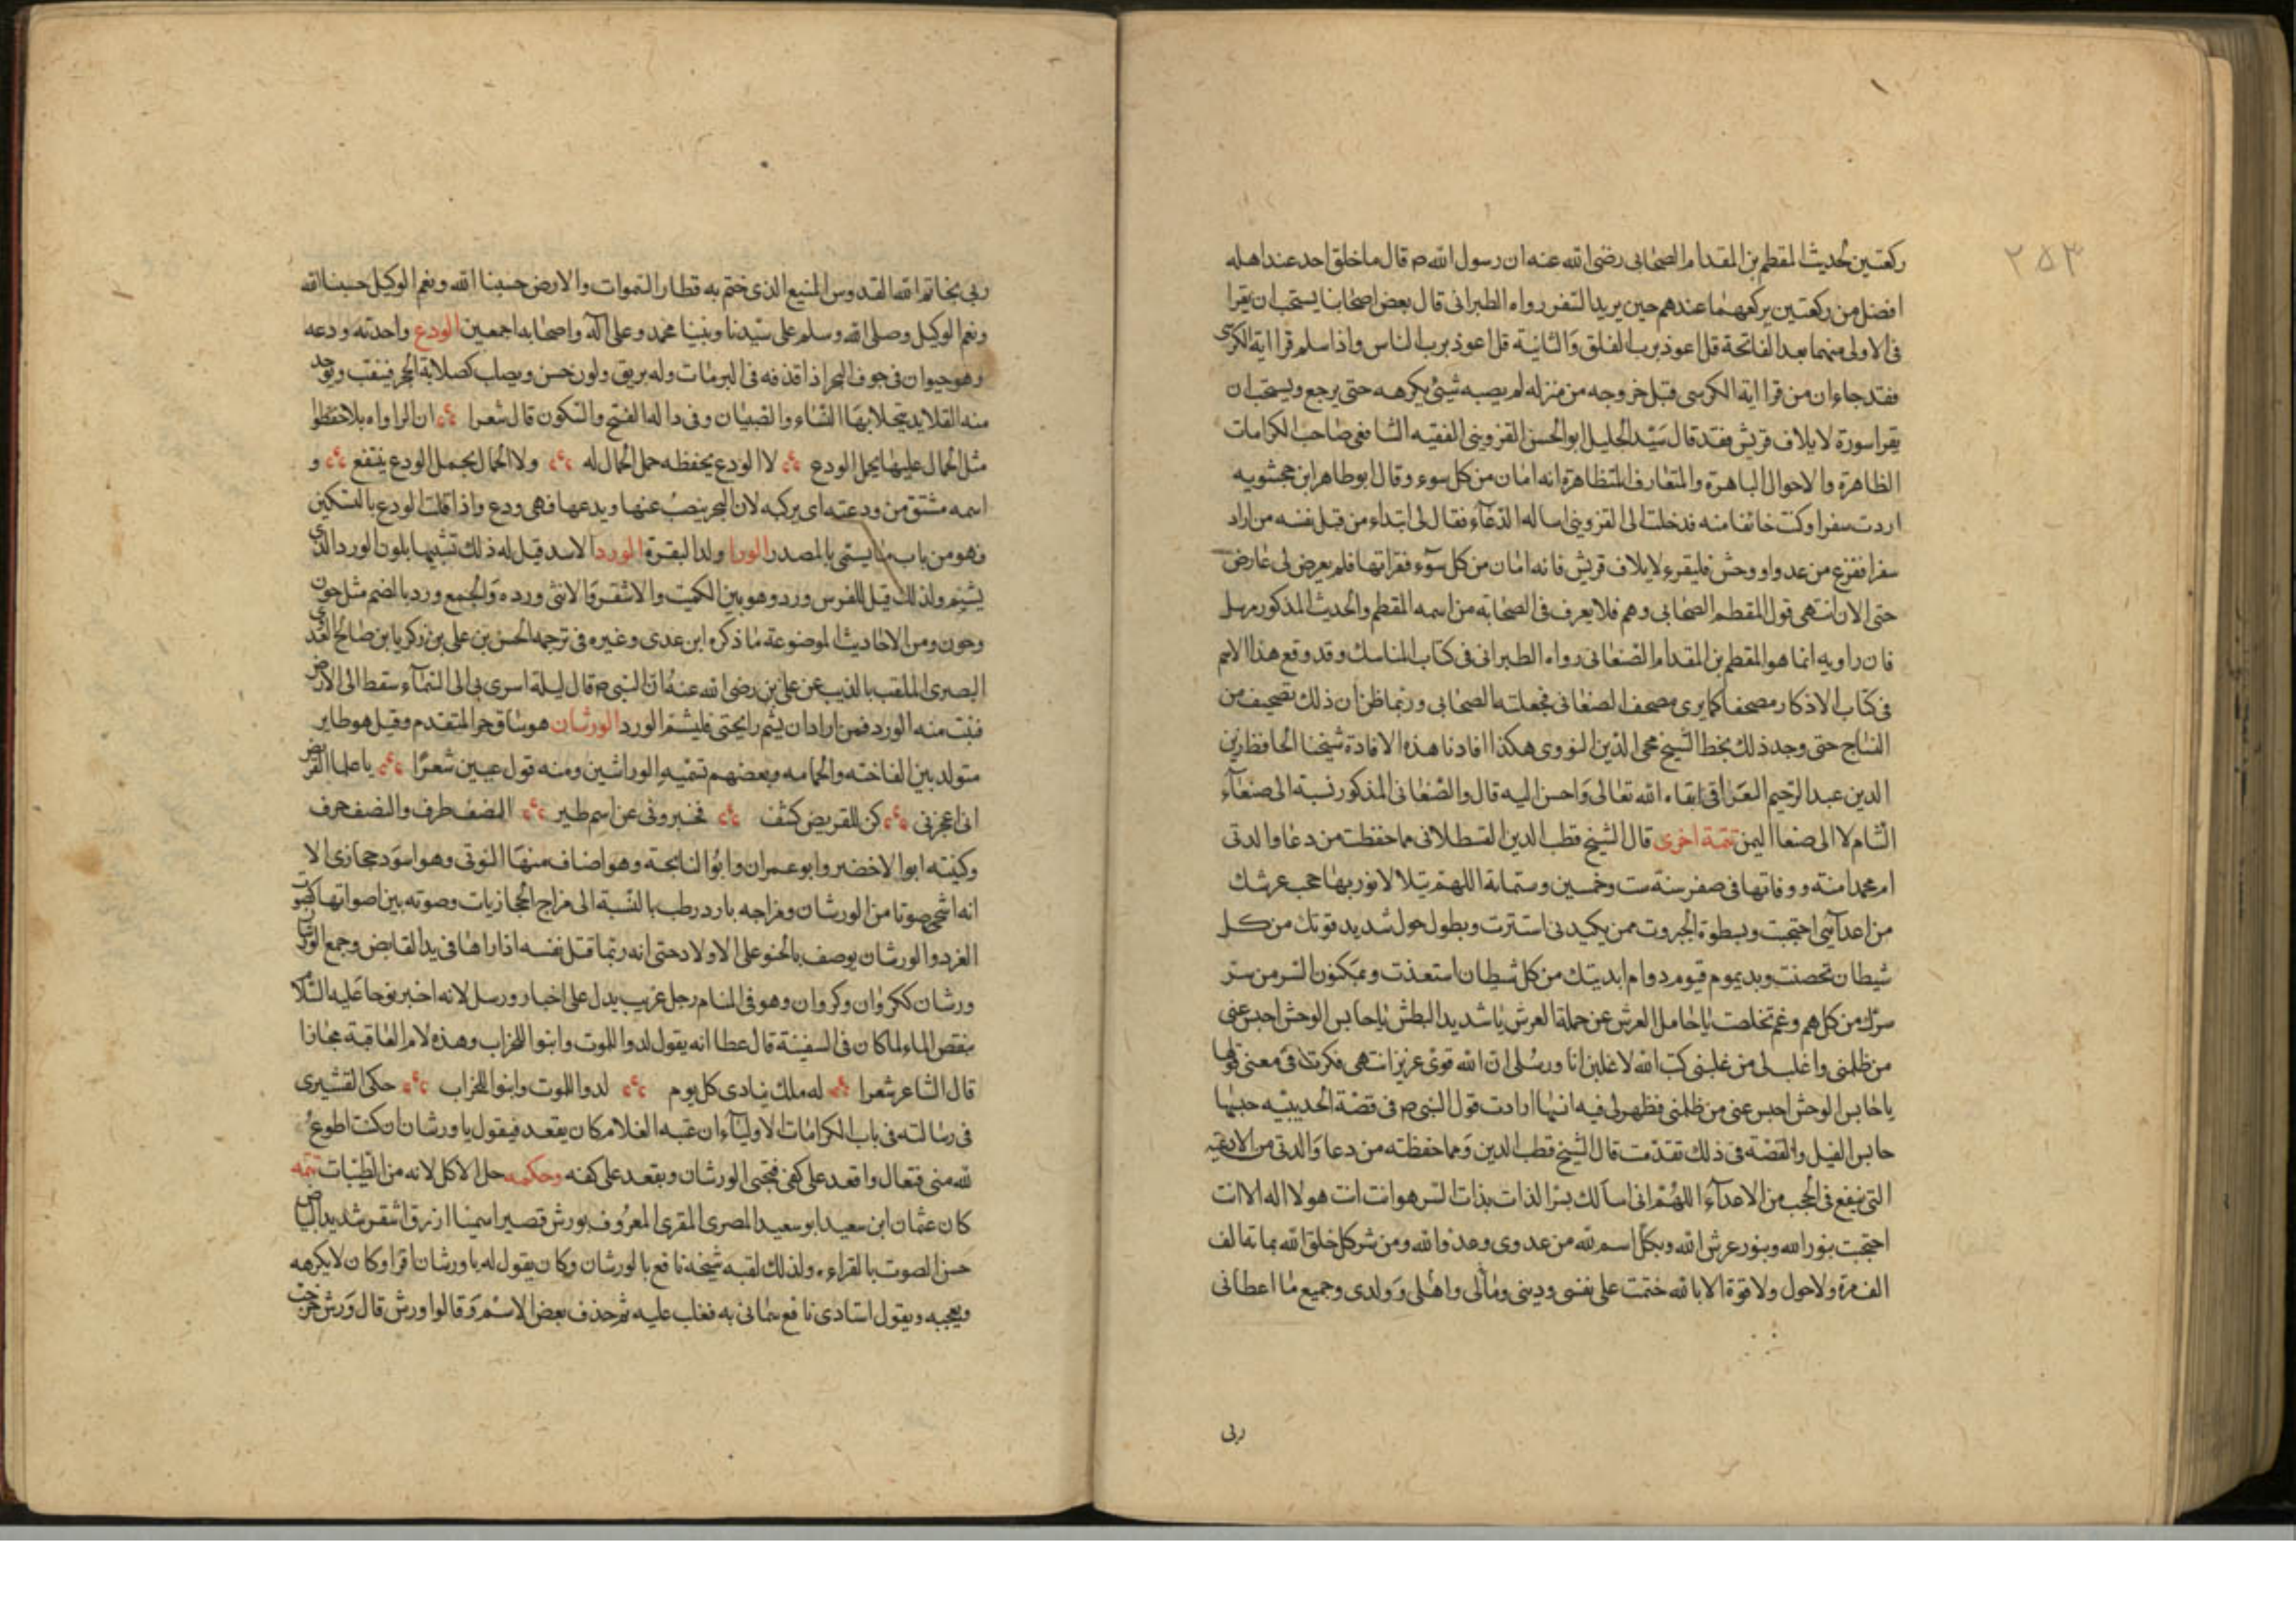 ٢٥٣
ركعتين لحديث المقطم بن المقدام الصحابى رضى الله عنه ان رسول الله ص قال ما خلق احد عند اهله
افضل من ركعتين يركعهما عندهم حين يريد السفر رواه الطبرانى قال بعض اصحابنا يستحب ان يقرا
فى الاولى منهما بعد الفاتحة قل اعوذ برب الفلق والثانية قل اعوذ برب الناس واذا سلم قرا اية الكرسى
فقد جاء ان من قرا اية الكرسى قبل خروجه من منزله لم يصبه شيئ يكرهه حتى يرجع ويستحب ان
يقرا سورة لايلاف قريش فقد قال سيد الجليل ابو الحسن القزوينى الفقيه الشافعى صاحب الكرامات
الظاهرة والاحوال الباهرة والمتعارف المتظاهرة انه امان من كل سوء وقال ابو طاهر ابن جحشويه
اردت سفرا وكنت خائفا منه فدخلت الى القزوينى اساله الدعاء فقال لى ابتداء من قبل نفسه من اراد
سفرا ففزع من عدو او وحش فليقرء لايلاف قريش فانه امان من كل سوء فقراتها فلم يعرض لى عارض
حتى الان انتهى قول المقطم الصحابى وهم فلا يعرف فى الصحابه من اسمه المقطم والحديث المذكور مرسل
فان راويه انما هو المقطم بن المقدام الصنعانى رواه الطبرانى فى كتاب المناسك وقد وقع هذا الاسم
فى كتاب الاذكار مصحفا كما يرى مصحف الصنعانى فجعلته الصحابى وربما ظن ان ذلك تصحيف من
النساج حتى وجد ذلك بخط الشيخ محى الدين النووى هكذا افادنا هذه الافادة شيخنا الحافظ زين
الدين عبد الرحيم العراقى ابقاه الله تعالى واحسن اليه قال والصنعانى المذكور نسبة الى صنعاء
الشام لا الى صنعا اليمن تتمة اخرى قال الشيخ قطب الدين القسطلانى مما حفظت من دعا والدتى
ام محمد امنة ووفاتها فى صفر سنة ست وخمسين وستماية اللهم بتلالا نور بهاء حجب عرشك
من اعدآئى احتجبت وبسطوة الجبروت ممن يكيدنى استترت وبطول حول شديد قوتك من كل
شيطان تحصنت وبديموم قيوم دوام ابديتك من كل شيطان استعذت وبمكنون السر من ستر
سرك من كل هم وغم تخلصت يا حامل العرش عن حملة العرش يا شديد البطش يا حابس الوحش احبس عنى
من ظلمنى واغلب لى من غلبنى كتب الله لاغلبن انا ورسلى ان الله قوى عزيز انتهى فكرت فى معنى قولها
يا حابس الوحش احبس عنى من ظلمنى فظهر لى فيه انها ارادت قول النبى ص فى قصة الحديبيه حبسها
حابس الفيل والقصة فى ذلك تقدمت قال الشيخ قطب الدين ومما حفظته من دعا والدتى من الادعيه
التى ينفع فى الحجب من الاعدآء اللهم انى اسالك بسر الذات بذات السر هو انت انت هو لا اله الا انت
احتجبت بنور الله وبنور عرش الله وبكل اسم لله من عدوى وعدو الله ومن شر كل خلق الله بماية الف
الف مرة ولا حول ولا قوة الا بالله ختمت على نفسى ودينى ومالى واهلى وولدى وجميع ما اعطانى
ربى
ربى بخاتم الله القدوس المنيع الذى ختم به قطار السموات والارض حسبنا الله ونعم الوكيل حسبنا الله
ونعم الوكيل وصلى الله وسلم على سيدنا ونبينا محمد وعلى آله واصحابه اجمعين الودع واحدته ودعه
وهو حيوان فى جوف البحر اذا قذفه فى البر مات وله بريق ولون حسن ويصلب كصلابة الحجر فيثقب ويوخد
منه القلايد يتحلا بها النساء والصبيان وفى داله الفتح والسكون قال شعرا ان الرواه بلا حفظوا
مثل الجمال عليها يحمل الودع لا الودع يحفظه حمل الجمال له ولا الجمال بحمل الودع ينتفع و
اسمه مشتق من ودعته اى يركبه لان البحر ينصب عنها ويدعها فهى ودع واذا قلت الودع بالتسكين
فهو من باب ما يسمى بالمصدر الورا ولد البقرة المورد الاسد قيل له ذلك تشبيها بلون الورد الذى
يشم ولذلك قيل للفرس ورد وهو بين الكميت والاشقر والانثى ورده والجمع ورد بالضم مثل جون
وجون ومن الاحاديث الموضوعة ما ذكره ابن عدى وغيره فى ترجمه الحسن بن على بن زكريا بن صالح العدوى
البصرى الملقب بالذيب عن على بن رضى الله عنه ان النبى ص قال ليلة اسرى بى الى السمآء سقط الى الارض
فنبت منه الورد فمن اراد ان يشم رايحتى فليشم الورد الورشان هو ساق حر المتقدم وقيل هو طاير
متولد بين الفاخته والحمامه وبعضهم تسميه الوراشين ومنه قول عيين شعرا يا علما القريض
انى اعجزنى كن للقريض كشف فخبرونى عن اسم طير النصف ظرف والنصف حرف
وكنيته ابو الاخضر وابو عمران وابو النابحة وهو اضاف منها النوتى وهو اسود حجازى الا
انه اشجى صوتا من الورشان ومزاجه بارد رطب بالنسبة الى مزاج الحجازيات وصوته بين اصواتها كصوت
الغرد والورشان يوصف بالحنو على الاولاد حتى انه ربما قتل نفسه اذا راها فى يد القابض وجمع الورشان
ورشان ككروان وكروان وهو فى المنام رجل غريب يدل على اخبار ورسل لانه اخبر نوحا عليه السلام
بنقص الماء لما كان فى السفينة قال عطا انه يقول لدوا للموت وابنوا للخراب وهذه لام العاقبة مجازا
قال الشاعر شعرا له ملك ينادى كل يوم لدوا للموت وابنوا للخراب حكى القشيرى
فى رسالته فى باب الكرامات الاوليآء ان عتبه الغلام كان يقعد فيقول يا ورشان ان كنت اطوع
لله منى فتعال واقعد على كفى فيجئ الورشان ويقعد على كفه وحكمه حل الاكل لانه من الطيبات تتمه
كان عثمان ابن سعيد ابو سعيد المصرى المقرى المعروف بورش قصير اسمينا ازرق اشقر شديد البياض
حسن الصوت بالقراءه ولذلك لقبه شيخه نافع بالورشان وكان يقول له يا ورشان اقرا وكان لا يكرهه
ويعجبه ويقول استادى نافع سمانى به فغلب عليه ثم حذف بعض الاسم وقالوا ورش قال ورش خرجت